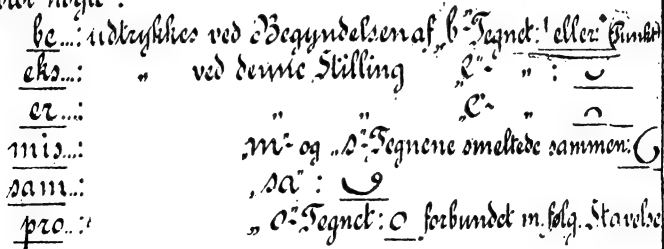 be...: udtrykkes ved Begyndelsen af „b“-Tegnet: ' eller: (Punkt)
eks...: „ ved denne Stilling „e“- „ :
er...: „ „ „e“- „
mis...: „m“- og „s“-Tegnene smeltede sammen:
sam...: „sa“ :
pro...: „o“-Tegnet: o forbundet m. følg. Stavelse